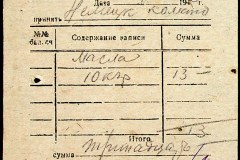 Дата 194 г.
принять
№№ бал. сч Содержание записи Сумма
масла
10 клр 13 –
Итого 13
сумма Тринадца